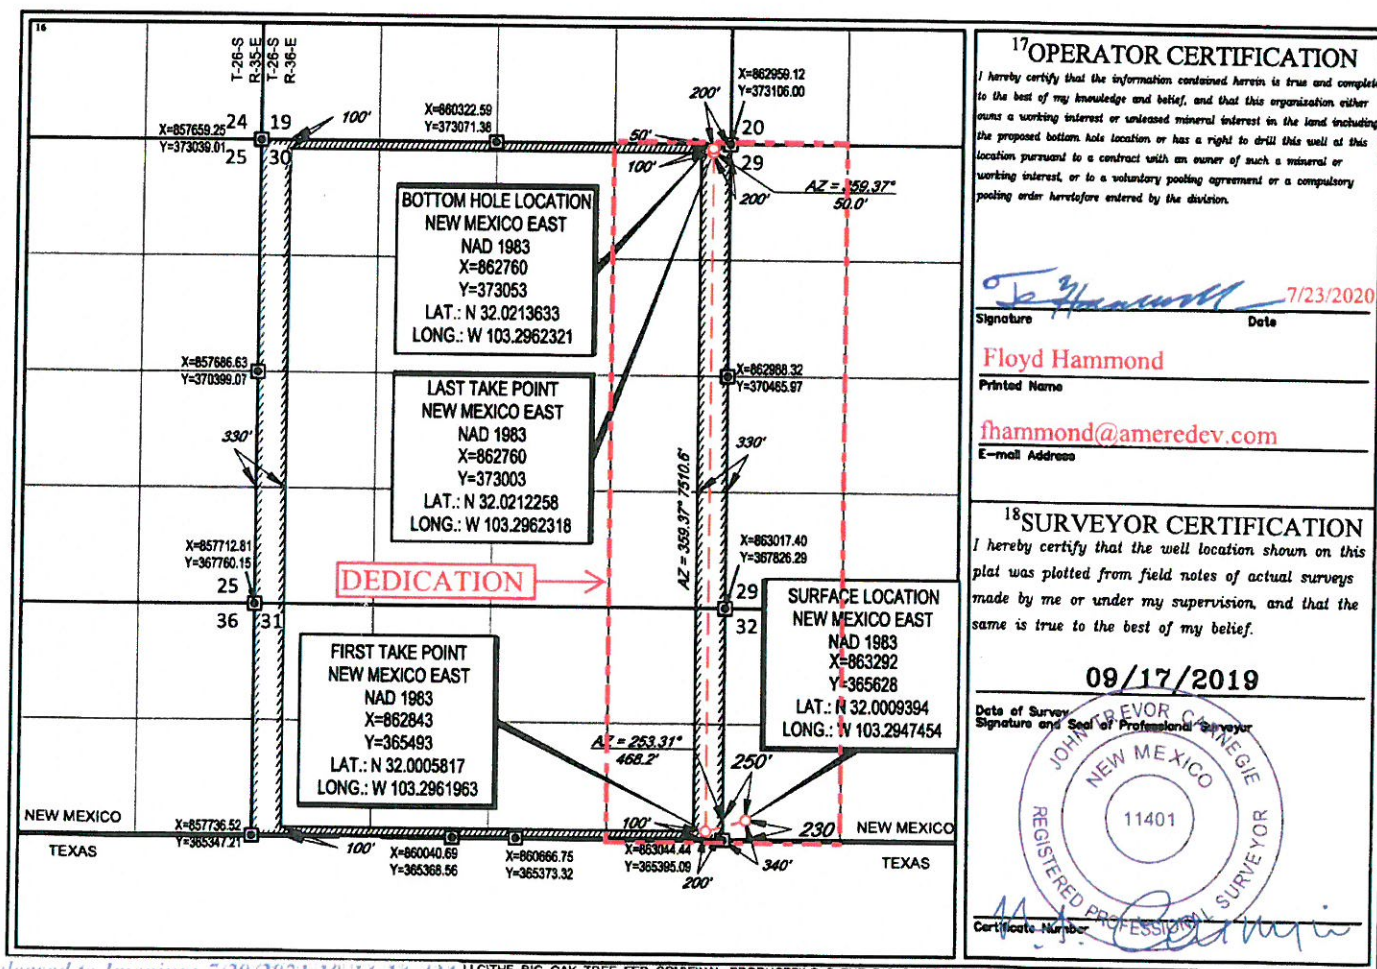 16
T-26-S
R-35-E
T-26-S
R-36-E
X=857659.25
Y=373039.01
24 19
25 30
100'
X=860322.59
Y=373071.38
X=862959.12
Y=373106.00
200'
20
29
50'
100'
200'
AZ = 359.37°
50.0'
BOTTOM HOLE LOCATION
NEW MEXICO EAST
NAD 1983
X=862760
Y=373053
LAT.: N 32.0213633
LONG.: W 103.2962321
LAST TAKE POINT
NEW MEXICO EAST
NAD 1983
X=862760
Y=373003
LAT.: N 32.0212258
LONG.: W 103.2962318
X=857686.63
Y=370399.07
X=862988.32
Y=370465.97
330'
330'
AZ = 359.37° 7510.6'
X=857712.81
Y=367760.15
25
36 31
X=863017.40
Y=367826.29
29
32
DEDICATION
SURFACE LOCATION
NEW MEXICO EAST
NAD 1983
X=863292
Y=365628
LAT.: N 32.0009394
LONG.: W 103.2947454
FIRST TAKE POINT
NEW MEXICO EAST
NAD 1983
X=862843
Y=365493
LAT.: N 32.0005817
LONG.: W 103.2961963
AZ = 253.31°
468.2'
250'
230
340'
100'
200'
100'
NEW MEXICO
TEXAS
NEW MEXICO
TEXAS
X=857736.52
Y=365347.21
X=860040.69
Y=365368.56
X=860666.75
Y=365373.32
X=863044.44
Y=365395.09
17 OPERATOR CERTIFICATION
I hereby certify that the information contained herein is true and complete
to the best of my knowledge and belief, and that this organization either
owns a working interest or unleased mineral interest in the land including
the proposed bottom hole location or has a right to drill this well at this
location pursuant to a contract with an owner of such a mineral or
working interest, or to a voluntary pooling agreement or a compulsory
pooling order heretofore entered by the division.
7/23/2020
Signature Date
Floyd Hammond
Printed Name
fhammond@ameredev.com
E-mail Address
18 SURVEYOR CERTIFICATION
I hereby certify that the well location shown on this
plat was plotted from field notes of actual surveys
made by me or under my supervision, and that the
same is true to the best of my belief.
09/17/2019
Date of Survey
Signature and Seal of Professional Surveyor
JOHN TREVOR CARNEGIE
NEW MEXICO
11401
REGISTERED PROFESSIONAL SURVEYOR
Certificate Number